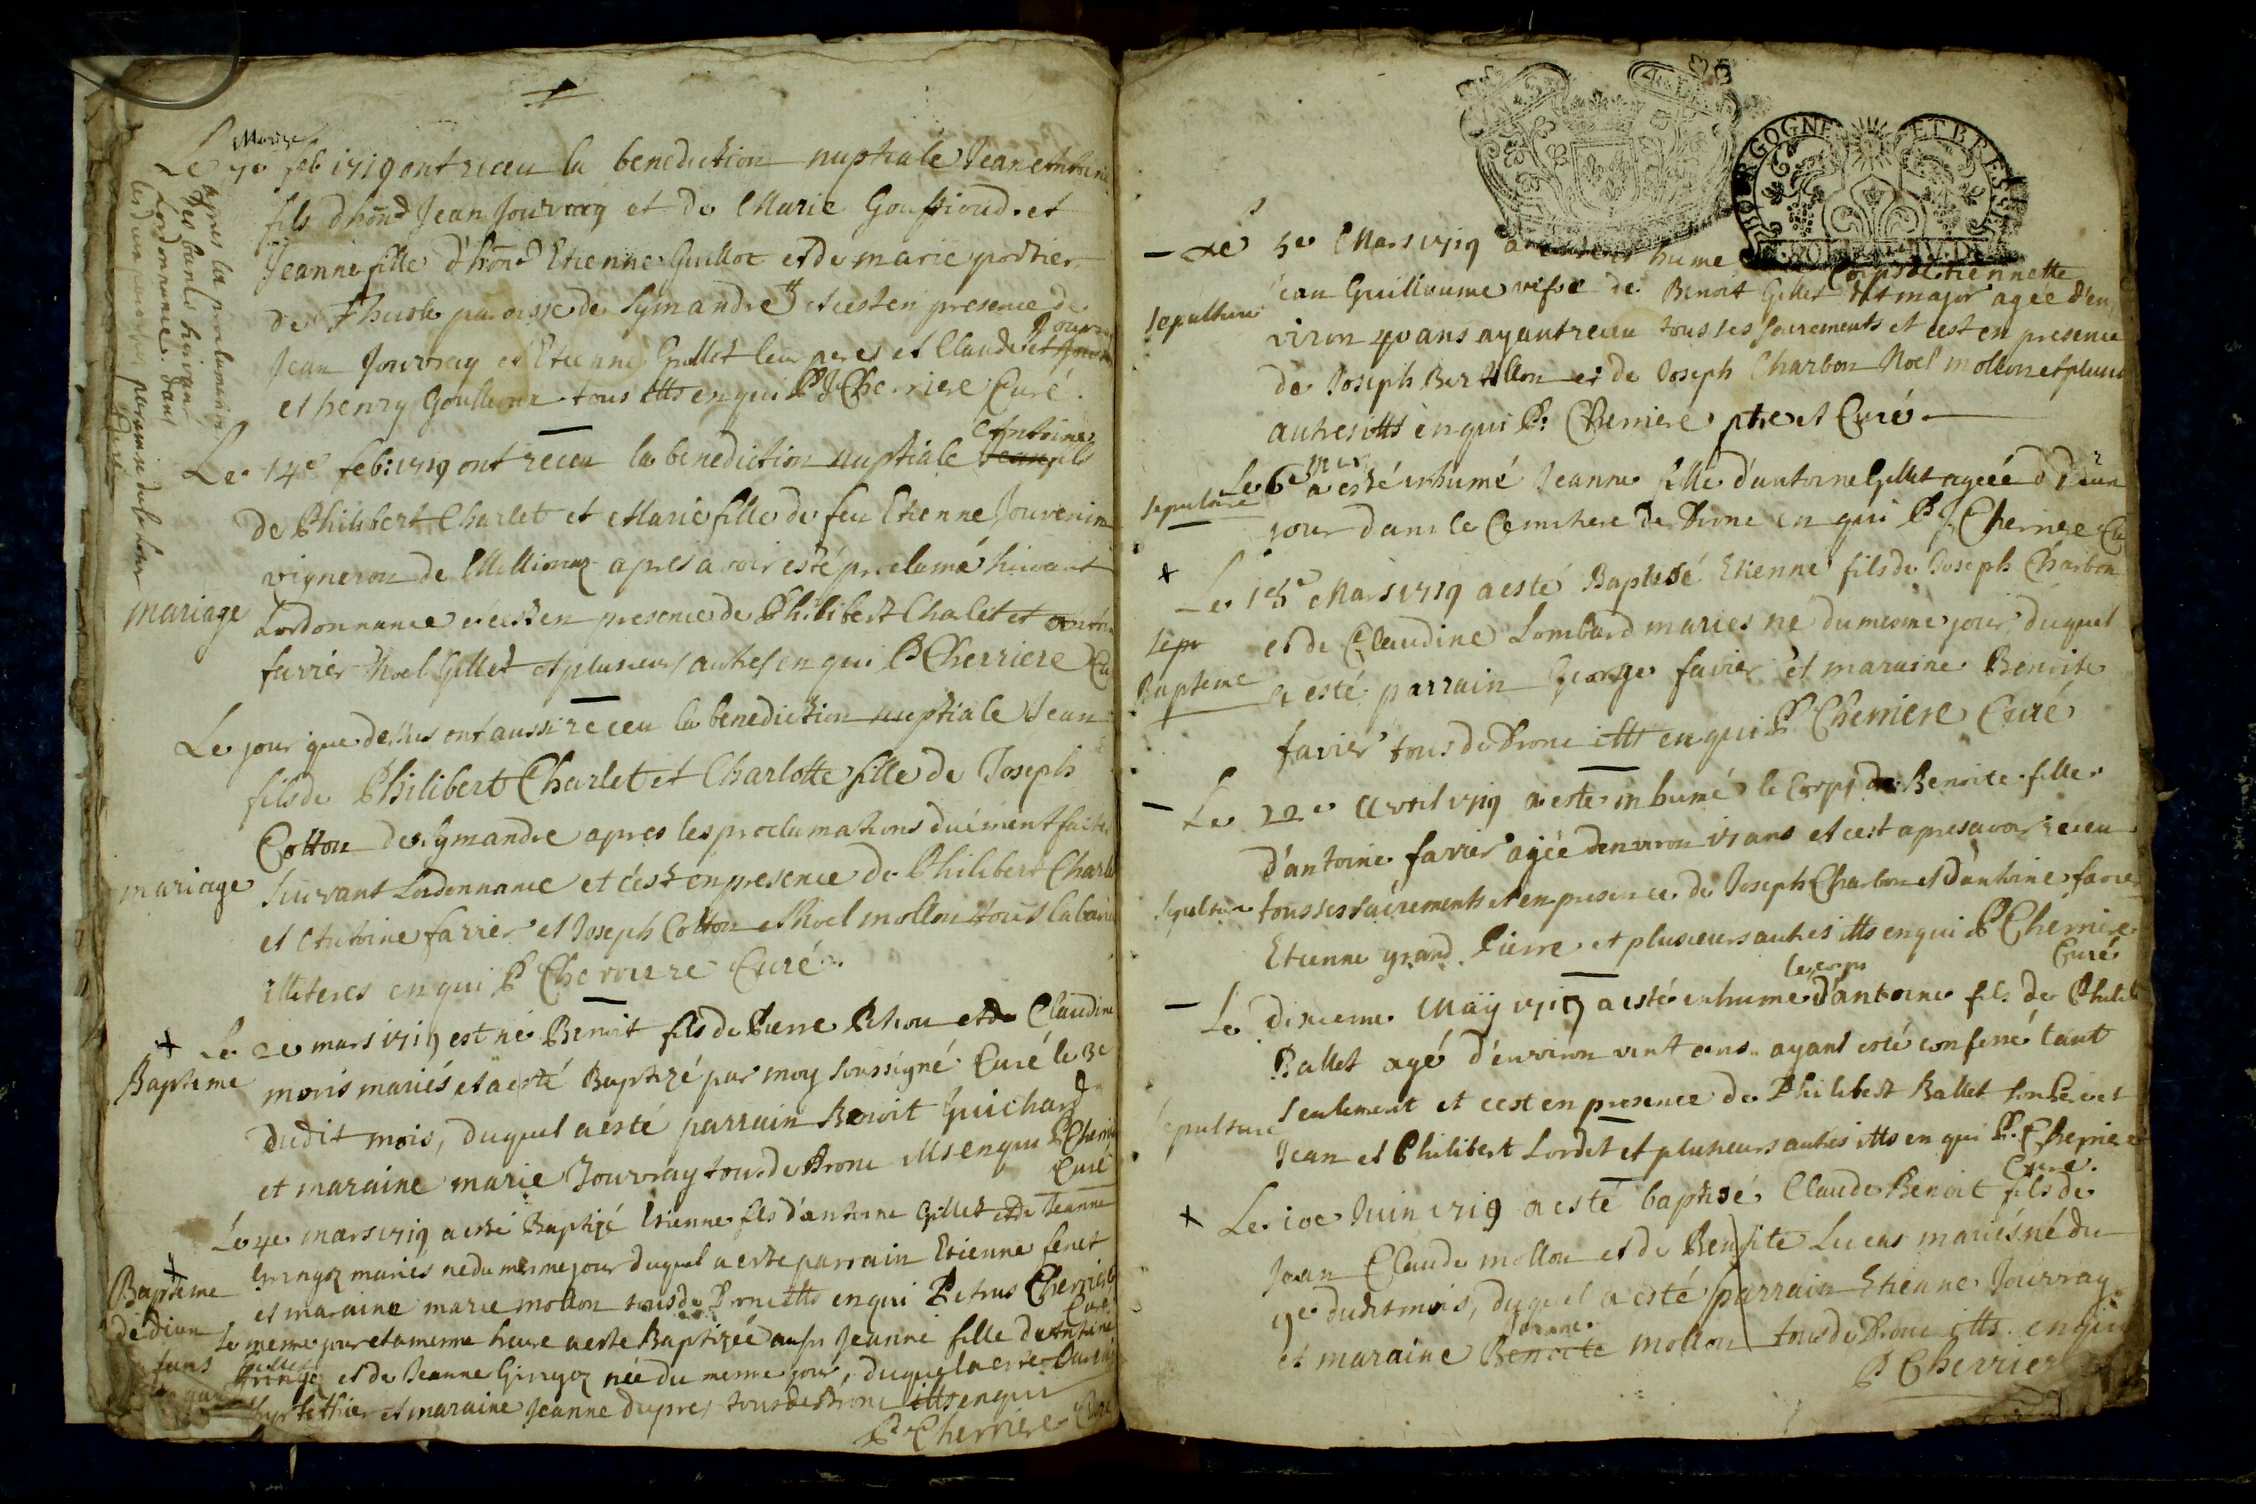 Le 7e feb 1719 ont receu la benediction nuptiale Jean
fils d'hond Jean Jouvray et de Marie Gouffioud et
Jeanne fille d'hond Etienne Guillot et de marie portier
de paroisse de Symandre et cest en presence de
Jean Jouvray et Etienne Grillet leur peres et Claude
et henry tous itts enqui P Cherriere Curé
apres la proclamation
des bancts suivant
Lordonnance dans
Le 14e feb: 1719 ont receu la benediction nuptiale Antoine fils
de Philibert Charlet et Marie fille de feu Etienne
vigneron de apres avoir esté proclamé suivant
mariage
Lordonnance et cest en presence de Philibert Charlet et
favier Noel Gillet et plusieurs autres en qui P Cherriere Cu
Le jour que dessus ont aussi receu la benediction nuptiale Jean
fils de Philibert Charlet et Charlotte fille de Joseph
Cotton de Symandre apres les proclamations duëment faites
mariage
suivant Lordonnance et c'est en presence de Philibert Charle
et Antoine favier et Joseph Cotton et Noel mollon tous
illiteres enqui P Cherriere Curé
Le 2e mars 1719 est né Benoit fils de Pierre et de Claudine
Bapteme
moris mariés et a esté Baptizé par moy soussigné Curé le 3e
dudit mois, duquel a esté parrain Benoit Guichard
et maraine marie Jouvray tous de Drone itts enqui P Cherri
Curé
Le 4e mars 1719 a esté Baptizé Etienne fils d'antoine Gillet et de Jeanne
Gringoz mariés né du mesme jour duquel a esté parrain Etienne feret
Bapteme
et maraine marie mollon tous de Drone itts enqui Petrus Cherriere
Curé
de deux
Le meme jour et a meme heure a esté Baptizée aussi Jeanne fille de Antoine
et de Jeanne Gringoz née du meme jour, duquel a esté
et maraine Jeanne dupres tous de Drone itts enqui
P Cherriere Curé
BOURGOGNE ET BRESSE
Le 5e Mars 1719 a esté inhumé Corps de Etiennette
Guillaume vefve de Benoit Gillet dit major agée d'en
sepulture
viron 40 ans ayant receu tous ses sacrements et cest en presence
de Joseph Bertillon et de Joseph Charbon Noel mollon et plusie
autres itts enqui P: Cherriere ptre et Curé
Le 6e mars a esté inhumé Jeanne fille d'antoine Gillet ageé d'un
sepulture
jour dans le Cemitiere de Drone en qui P J Cherriere Cu
Le 15e Mars 1719 a esté Baptisé Etienne fils de Joseph Charbon
sepr
et de Claudine Lombard mariés né du mesme jour, duquel
Bapteme
a esté parrain George favier et maraine Benoite
favier tous de Drone itts enqui P Cherriere Curé
Le 22e Avril 1719 a esté inhumé le Corps de Benoite fille
d'antoine favier agée denviron ans et cest apres avoir receu
sepulture
tous ses sacrements et en presence de Joseph Charbon et d'antoine favier
Etienne grand Pierre et plusieurs autres itts enqui P Cherriere
Curé
le corps
Le dixieme May 1719 a esté inhumé d'antoine fils de Philib
Ballet agé d'environ vint ans ayant esté confessé tant
seulement et cest en presence de Philibert Ballet son pere et
sepulture
Jean et Philibert Lordet et plusieurs autres itts en qui P. Cherriere
Curé.
Le 10e Juin 1719 a esté baptisé Claude Benoit fils de
Jean Claude mollon et de Benoite Lucas mariés né du
9e dudit mois, duquel a esté parrain Etienne Jouvray
et maraine Benoite mollon tous de Drone itts enqui
P Cherriere